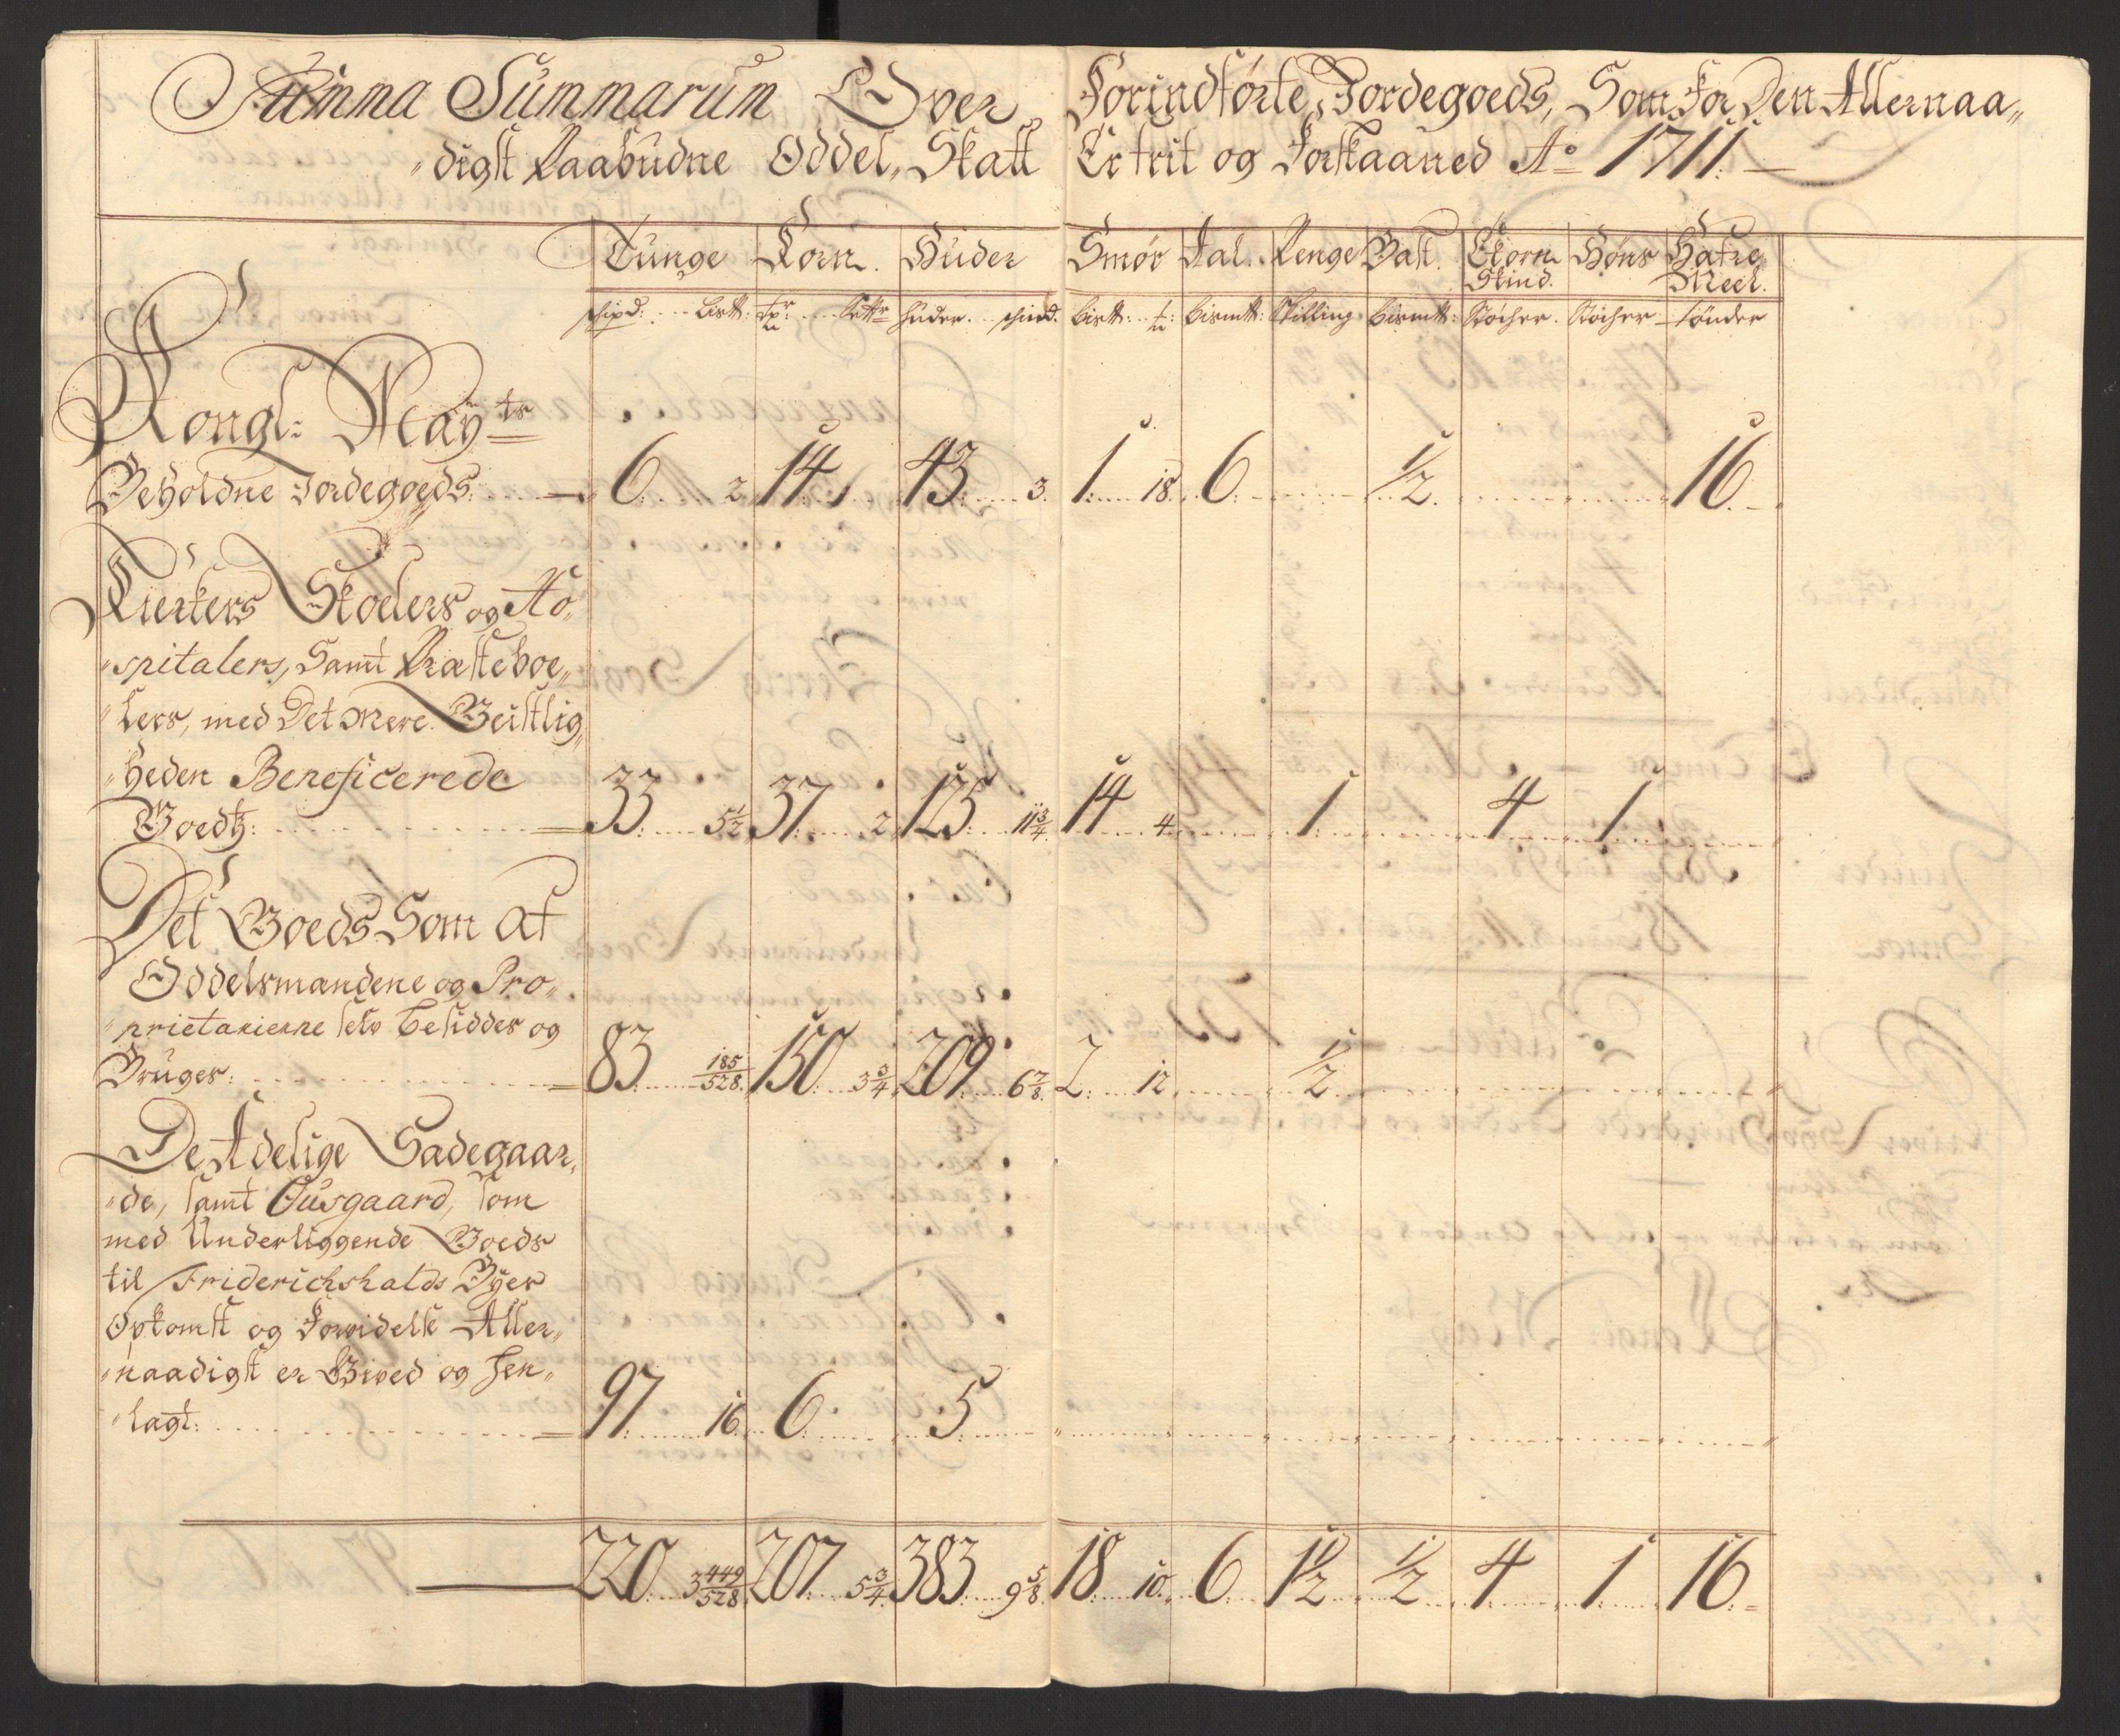 Summa Summarum Over Forindførte Jordegoeds, Som For Den Allernaa„
„digst Paabudne Oddel, Skatt Er frit og Forskaaned Ao 1711.
Tunge Korn. Huder Smør Sal. Penge Bast. Ekorn Høns Hafre
Skind. Meel.
skipd: Lis℔: tr: Sett. huder. skind. bis℔: ℔ bism℔: Skilling bism℔: Stöcher. Stöcher tönder
Kongl: Mayts
Beholdne Jordegoeds: 6. 2. 14 43. 3. 1. 18. 6. ½. 16.
Kierkers Skolers og Ho„
„spitalers, Samt Præsteboe„
„lers, med Det Mere Geistlig„
„heden Beneficerede
Goedtz: 33. 5½ 37. 2. 125. 11¾. 14 4. 1 4 1
Det Goeds Som af
Oddelsmandene og Pro„
„prietarierne selv besiddes og
Bruges: 83. 185/528. 150. 3¾. 209. 6⅞. 2. 12. ½
De Adelige Sadegaar„
„de, samt Ousgaard, som
med Underliggende Goeds
til Friderichshalds Byes
Opkomst og Forvidelse Aller„
„naadigst er Gived og hen„
„lagt: 97. 16. 6. 5.
220. 3 449/528 207. 5¾. 383. 9⅝. 18. 10. 6. 1½ ½ 4 1 16.